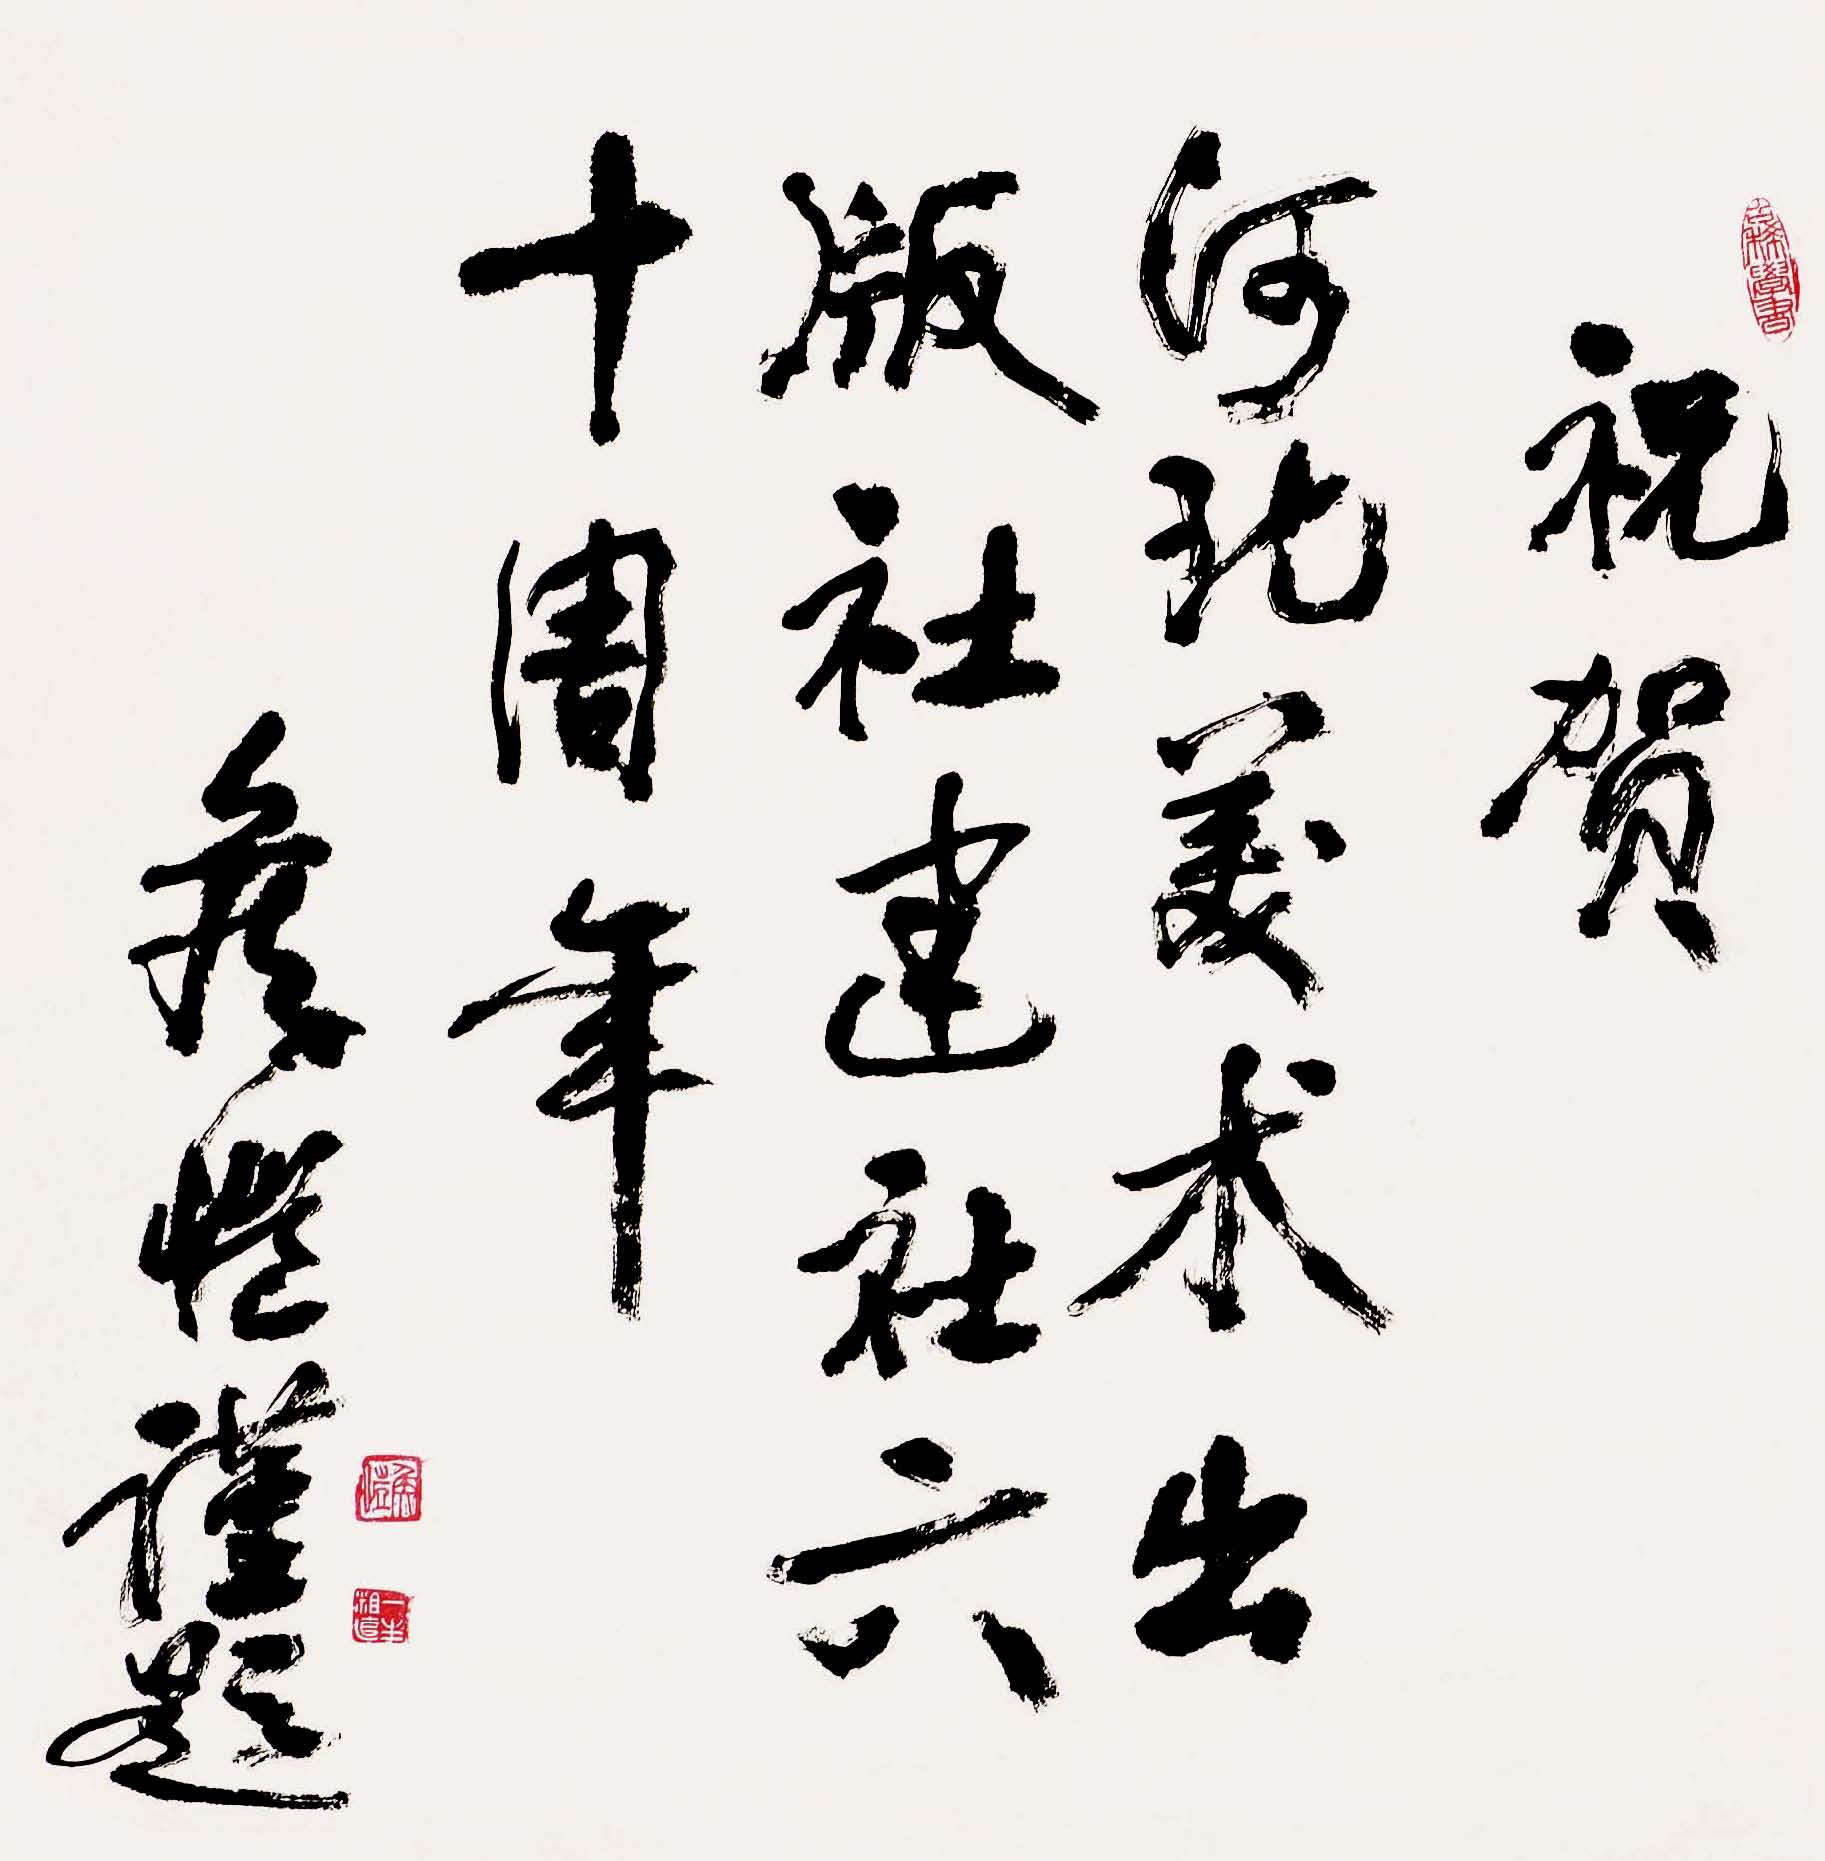 祝贺
河北美术出
版社建社六
十周年
恺谨题